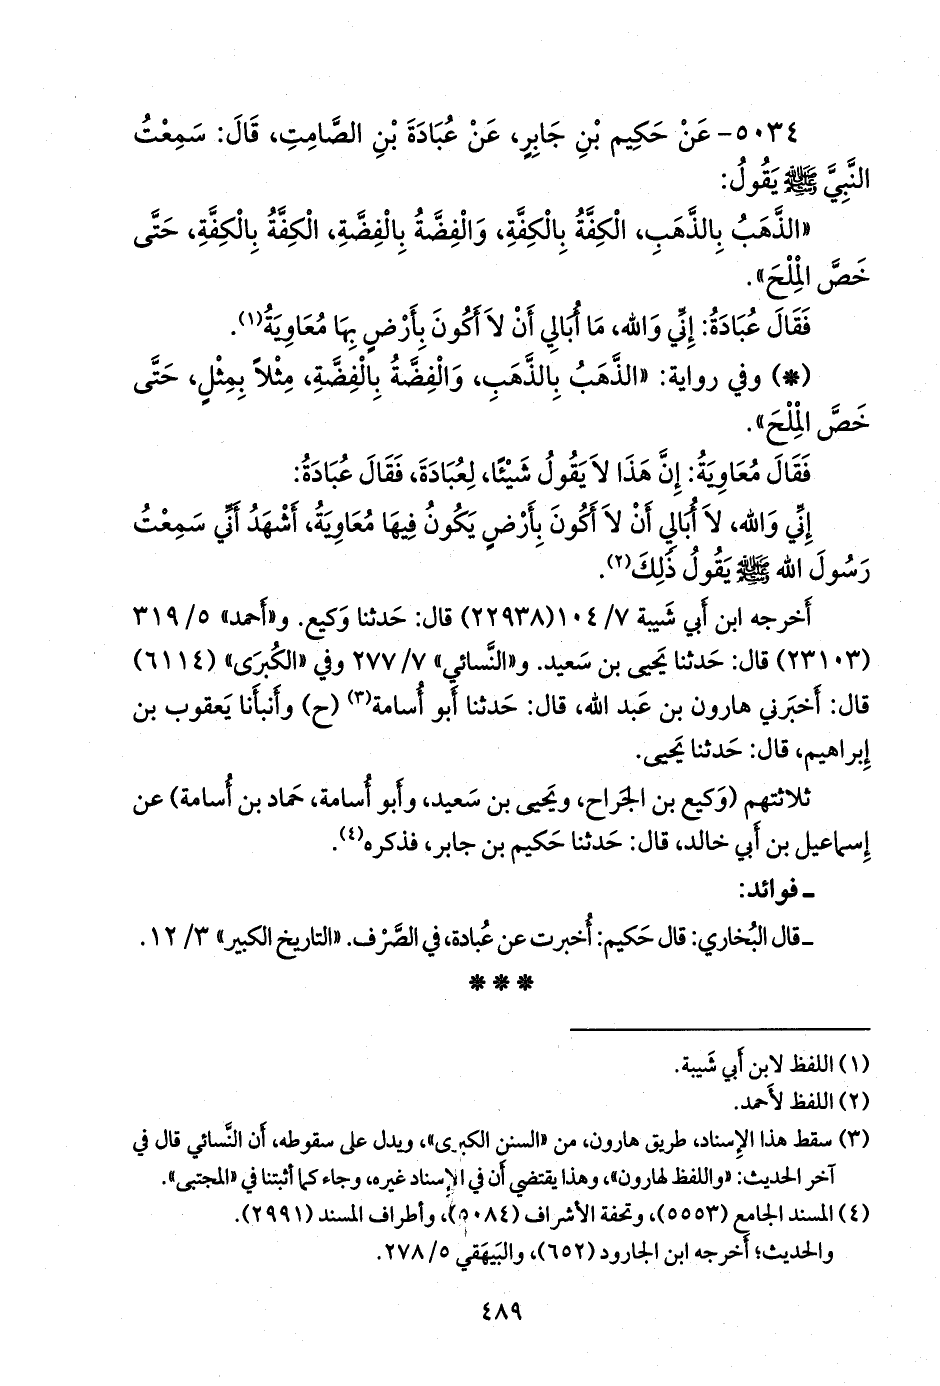 ٥٠٣٤- عَنْ حَكِيمِ بْنِ جَابِرٍ، عَنْ عُبَادَةَ بْنِ الصَّامِتِ، قَالَ: سَمِعْتُ
النَّبِيَّ ﷺ يَقُولُ:
«الذَّهَبُ بِالذَّهَبِ، الْكِفَّةُ بِالْكِفَّةِ، وَالْفِضَّةُ بِالْفِضَّةِ، الْكِفَّةُ بِالْكِفَّةِ، حَتَّى
خَصَّ الْمِلْحَ».
فَقَالَ عُبَادَةُ: إِنِّي وَالله، مَا أُبَالِي أَنْ لاَ أَكُونَ بِأَرْضٍ بِهَا مُعَاوِيَةُ(١).
(*) وفي رواية: «الذَّهَبُ بِالذَّهَبِ، وَالْفِضَّةُ بِالْفِضَّةِ، مِثْلاً بِمِثْلٍ، حَتَّى
خَصَّ الْمِلْحَ».
فَقَالَ مُعَاوِيَةُ: إِنَّ هَذَا لاَ يَقُولُ شَيْئًا، لِعُبَادَةَ، فَقَالَ عُبَادَةُ:
إِنِّي وَالله، لاَ أُبَالِي أَنْ لاَ أَكُونَ بِأَرْضٍ يَكُونُ فِيهَا مُعَاوِيَةُ، أَشْهَدُ أَنِّي سَمِعْتُ
رَسُولَ الله ﷺ يَقُولُ ذَلِكَ(٢).
أَخرجه ابن أَبي شَيبة ٧/ ١٠٤(٢٢٩٣٨) قال: حَدثنا وَكيع. و«أَحمد» ٥/ ٣١٩
(٢٣١٠٣) قال: حَدثنا يَحيى بن سَعيد. و«النَّسائي» ٧/ ٢٧٧ وفي «الكُبرَى» (٦١١٤)
قال: أَخبَرني هارون بن عَبد الله، قال: حَدثنا أَبو أُسامة(٣) (ح) وأَنبأَنا يَعقوب بن
إِبراهيم، قال: حَدثنا يَحيى.
ثلاثتهم (وَكيع بن الجَراح، ويَحيى بن سَعيد، وأَبو أُسامة، حَماد بن أُسامة) عن
إِسماعيل بن أَبي خالد، قال: حَدثنا حَكيم بن جابر، فذكره(٤).
ـ فوائد:
ـ قال البُخاري: قال حَكيم: أُخبرت عن عُبادة، في الصَّرْف. «التاريخ الكبير» ٣/ ١٢.
***
(١) اللفظ لابن أَبي شَيبة.
(٢) اللفظ لأَحمد.
(٣) سقط هذا الإِسناد، طريق هارون، من «السنن الكبرى»، ويدل على سقوطه، أَن النَّسائي قال في
آخر الحديث: «واللفظ لهارون»، وهذا يقتضي أَن في الإِسناد غيره، وجاء كما أَثبتنا في «المجتبى».
(٤) المسند الجامع (٥٥٥٣)، وتحفة الأشراف (٥٠٨٤)، وأطراف المسند (٢٩٩١).
والحديث؛ أَخرجه ابن الجارود (٦٥٢)، والبَيهَقي ٥/ ٢٧٨.
٤٨٩